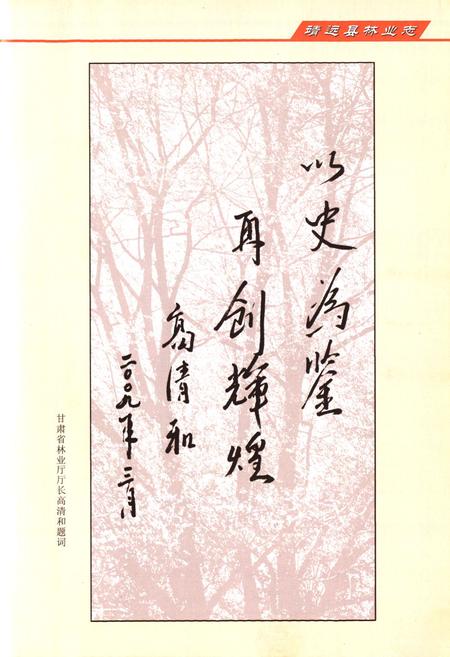 靖远县林业志
以史为鉴
再创辉煌
高清和
二〇〇九年三月
甘肃省林业厅厅长高清和题词